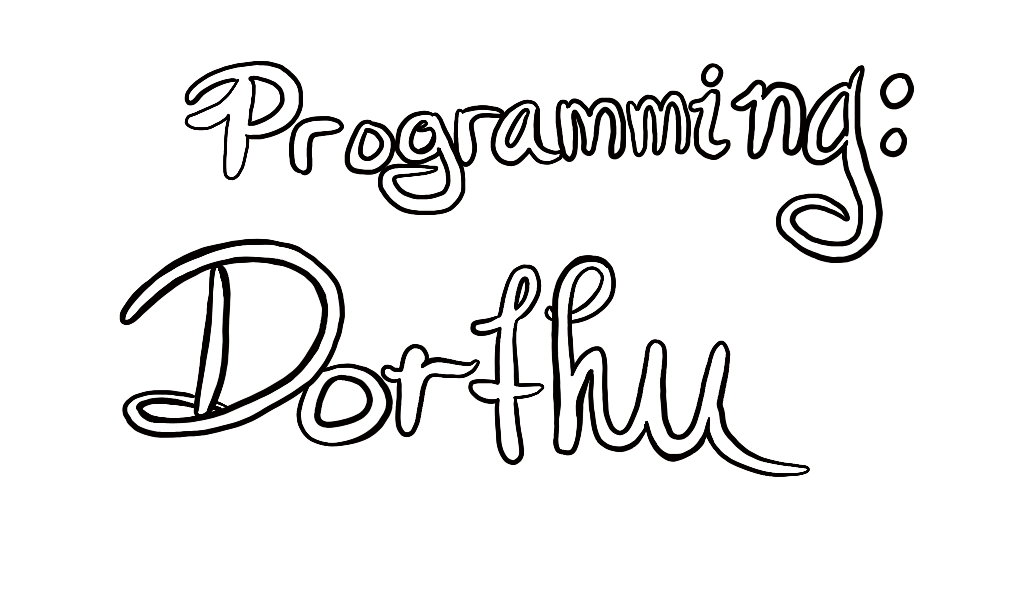 Programming:
Dorthu